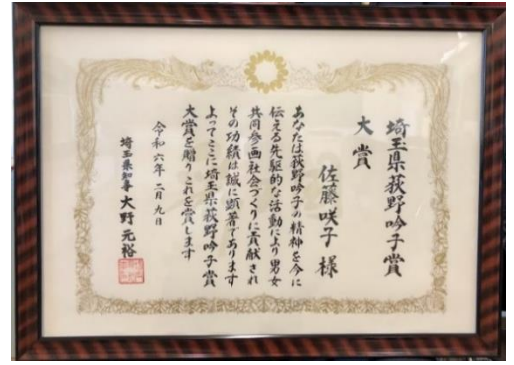 埼玉県荻野吟子賞
大賞
佐藤咲子様
あなたは荻野吟子の精神を今に
伝える先駆的な活動により男女
共同参画社会づくりに貢献され
その功績は誠に顕著であります
よってここに埼玉県荻野吟子賞
大賞を贈りこれを賞します
令和六年二月九日
埼玉県知事大野元裕